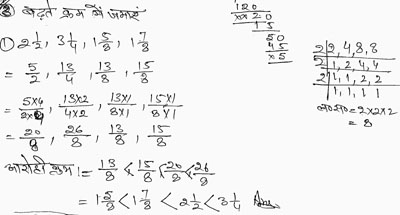 ② बढ़ते क्रम में जमाएं
① 2 1/2, 3 1/4, 1 5/8, 1 7/8
= 5/2, 13/4, 13/8, 15/8
= 5×4/2×4, 13×2/4×2, 13×1/8×1, 15×1/8×1
= 20/8, 26/8, 13/8, 15/8
आरोही क्रम = 13/8 < 15/8 < 20/8 < 26/8
= 1 5/8 < 1 7/8 < 2 1/2 < 3 1/4 Ans
120
××20
15
50
45
×5
2 | 2, 4, 8, 8
2 | 1, 2, 4, 4
2 | 1, 1, 2, 2
1, 1, 1, 1
ल०स० = 2×2×2
= 8